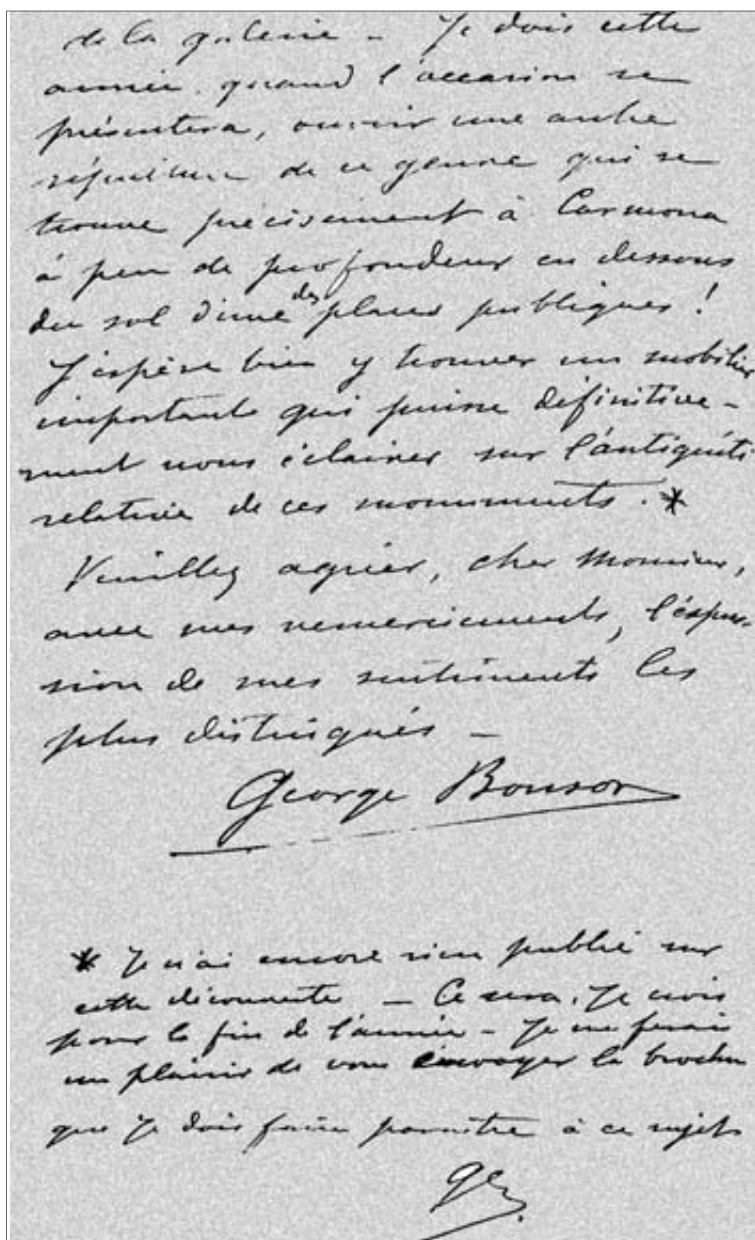 de la galerie – Je dois cette
année, quand l'occasion se
présentera, ouvrir une autre
sépulture de ce genre qui se
trouve précisément à Carmona
à peu de profondeur en dessous
du sol d'une des places publiques !
J'espère bien y trouver un mobilier
important qui puisse définitive-
ment nous éclairer sur l'antiquité
relative de ces monuments. *
Veuillez agréer, cher Monsieur,
avec mes remerciements, l'expres-
sion de mes sentiments les
plus distingués –
George Bonsor
* Je n'ai encore rien publié sur
cette découverte – Ce sera, Je crois
pour la fin de l'année – Je me ferai
un plaisir de vous envoyer la brochure
que Je dois faire paraître à ce sujet